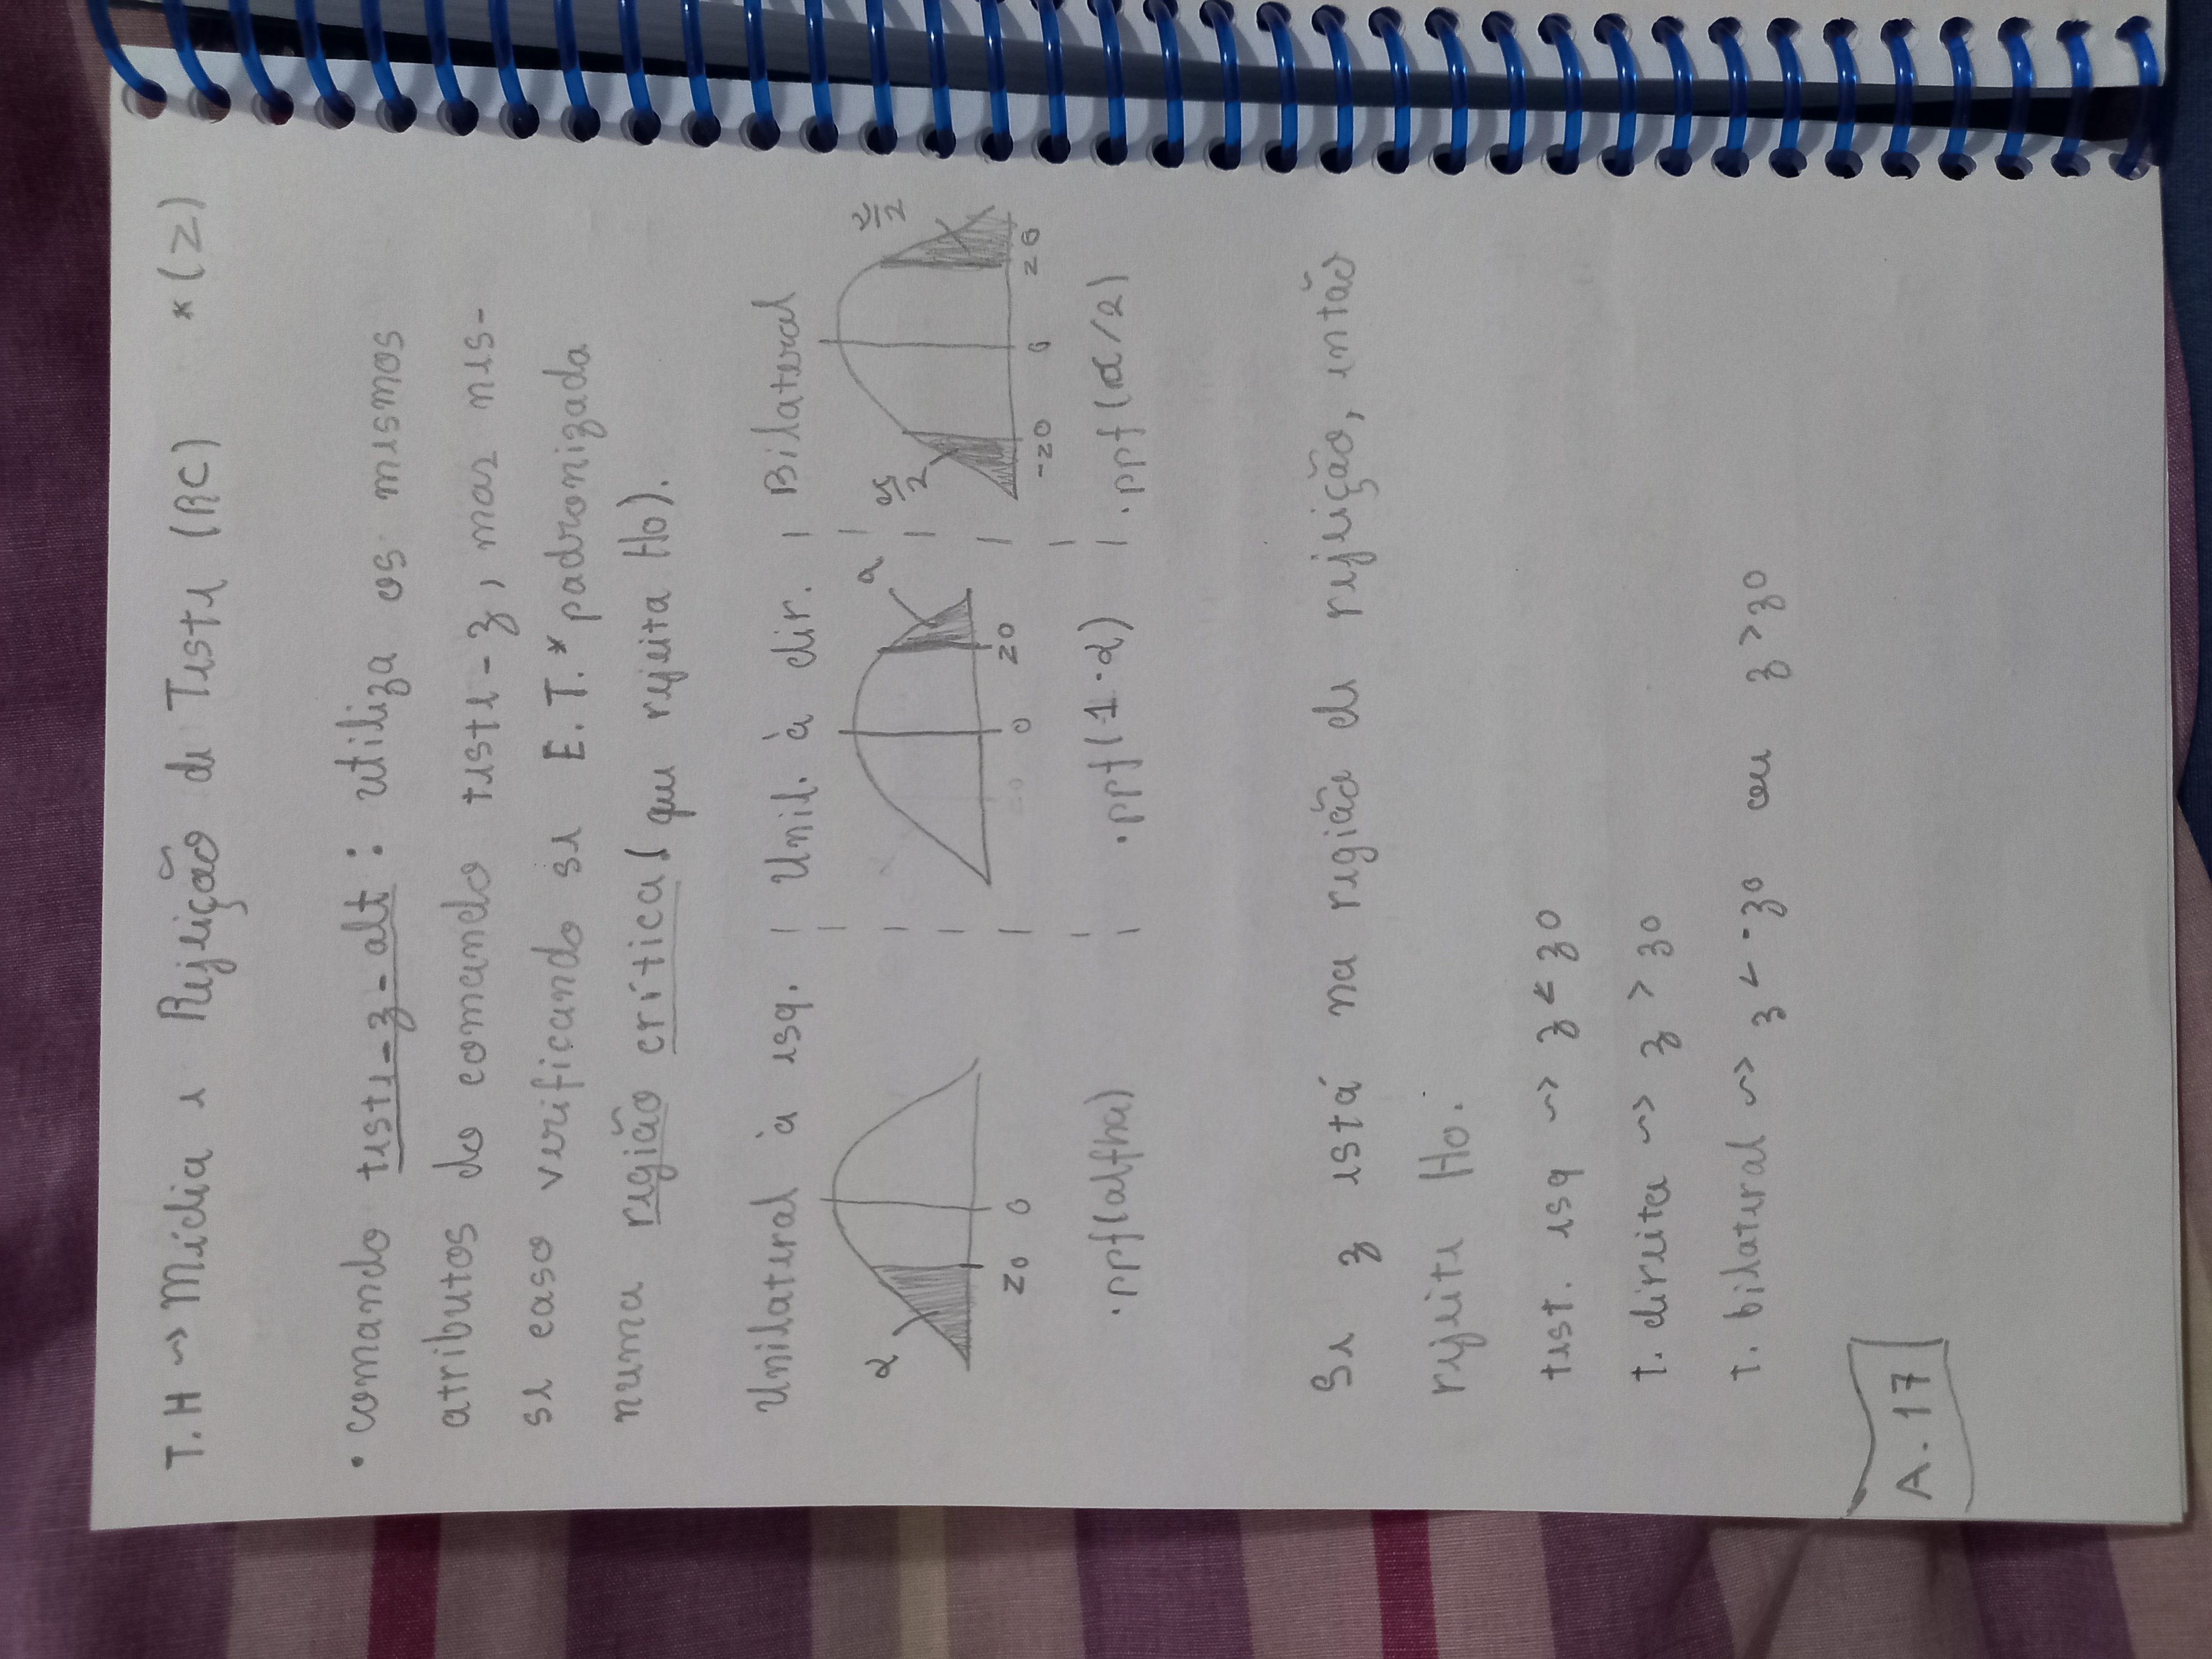 T.H ~> Média e Rejeição de Teste (RC) *(Z)
• comando teste-z-alt : utiliza os mesmos
atributos do comando teste-z, mas nes-
se caso verificando se E.T.* padronizada
numa região crítica (que rejeita H0).
Unilateral à esq. Unil. à dir. Bilateral
α α α/2 α/2
z0 0 0 z0 -z0 0 z0
.ppf(alfha) .ppf(1-α) .ppf(α/2)
Se z está na região de rejeição, então
rejeite H0.
test. esq ~> z < z0
t. direita ~> z > z0
t. bilateral ~> z < -z0 ou z > z0
A. 17